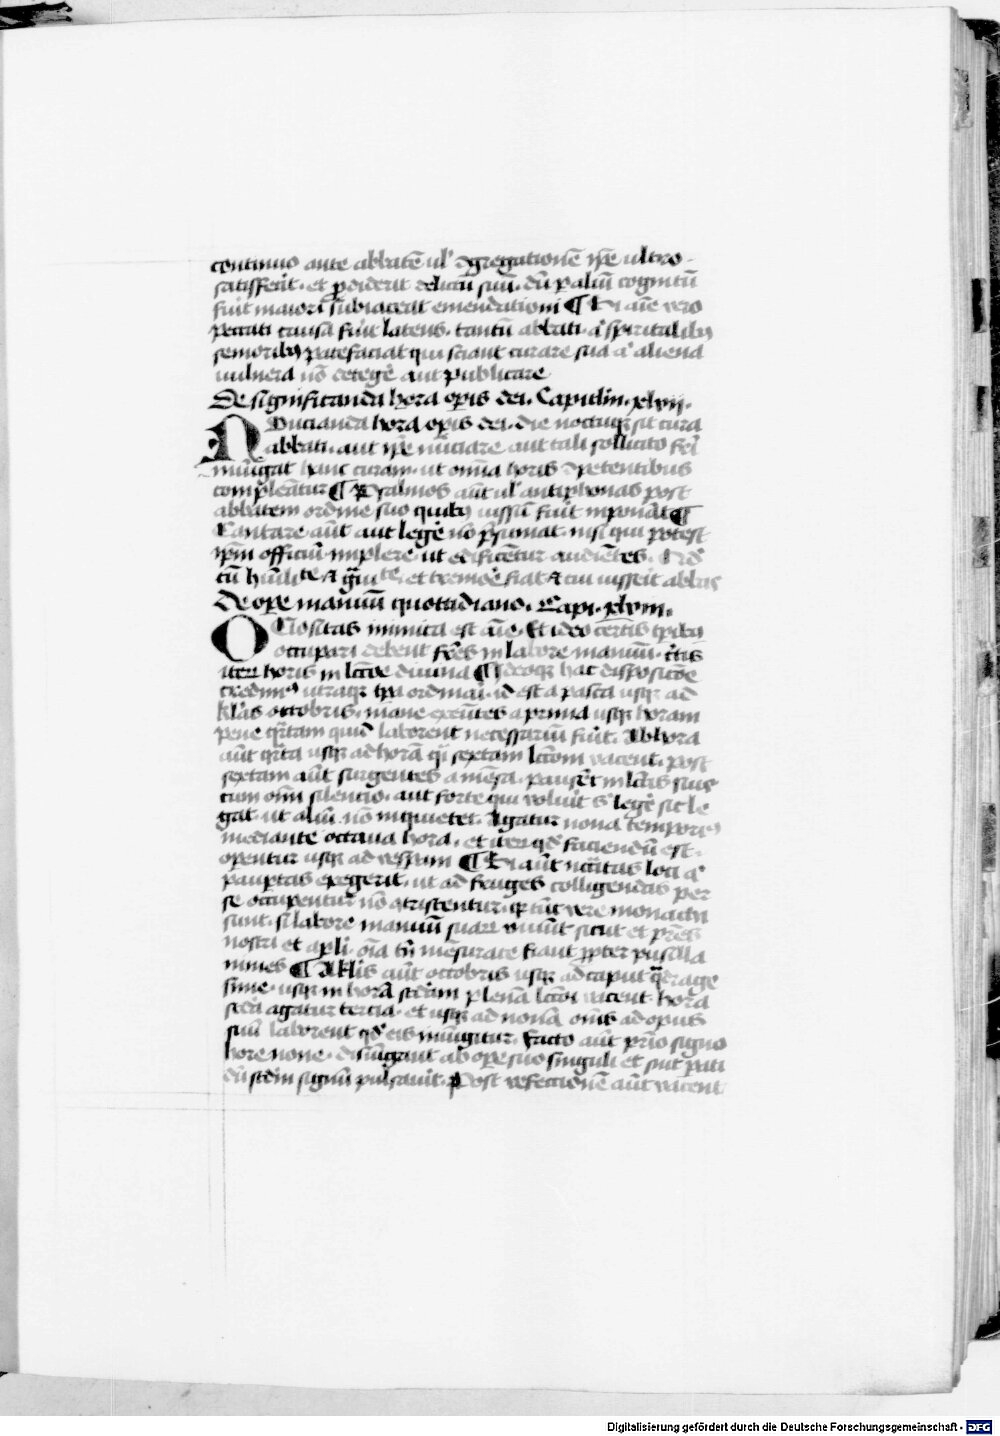 continuo ante abbatē ul' ɔgregationē ip̄e ultro
satisfecit · et p̱diderit delictū suū · dū p̱ aliū cognitū
fuit maiori subiaceat emendationi ¶ Si aīe vero
peccati causa fuit latens · tantū abbati · aᵗ spiritalibꝰ
senioribꝰ patefaciat qui sciant curare sua aᵗ aliena
vulnera nō detege᷑ aut publicare
De significanda hora op̱is dei · Capitulum · xlvij ·
Nūcianda hora op̱is dei · die noctuqꝫ sit cura
abbati · aut ip̄e nūciare aut tali sollicito fr̄i
iniūgat hanc curam · ut om̄ia horis ɔpetentibus
compleātur ¶ Psalmos aūt ul' antiphonas post
abbatem ordine suo quibꝰ iussū fuit inponāt ¶
Cantare aūt aut lege᷑ nō p̄sumat · nisi qui potest
ip̄m officiū implere · ut edificētur audiētes · Qd̄
cū hūilitᵗᵉ ⁊ gͣuitᵗᵉ · et tremoē fiat ⁊ cui iusserit abbas
De op̱e manuū quotidiano · Capi · xlviii ·
Ociositas inimica est aīe · Et ideo certis tp̱ibꝰ
occupari debent fr̄es in labore manuū · c̄tis
iteꝝ horis in lcōne diuina ¶ Ideoqꝫ hac dispositōe
credimꝰ utraqꝫ tp̱a ordinari · id est a pasca usqꝫ ad
kl'as octobris · mane exeūtes a prima usqꝫ horam
pene qͣrtam quicꝙ laborent necessariū fuit · Ab hora
aūt qͣrta usqꝫ ad horā qͣsi sextam lcōni vacent · post
sextam aūt surgentes a mēsa · pausēt in lc̄tis suis
cum om̄i silencio · aut forte qui voluit s' lege᷑ sic le
gat · ut aliū nō inquietet · Agatur nona temporiꝰ
mediante octaua hora · et iteꝝ qd̄ faciendū est ·
operentur usqꝫ ad vesp̱am ¶ Si aūt nc̄citas loci aᵗ
paup̱tas exegerit · ut ad fruges colligendas per
se occupentur nō ɔtristentur · qꝛ tūc vere monachi
sunt · si labore manuū suaꝝ viuūt sicut et pr̄es
nostri et apl'i · oīa tn̄ mēsurate fiant ꝓpter pusilla
nimes ¶ A kl'is aūt octobris usqꝫ ad caput qͣdrage
sime · usqꝫ in horā scdām plenā lcōni vacent · hora
scdā agatur tercia · et usqꝫ ad nonā om̄s ad opus
suū laborent qd̄ eis iniūgitur · Facto aūt prīo signo
hore none · disiūgant ab op̱e suo singuli et sint p̱ati
dū scdm signū pulsauit · Post refectionē aūt vacent
Digitalisierung gefördert durch die Deutsche Forschungsgemeinschaft - DFG